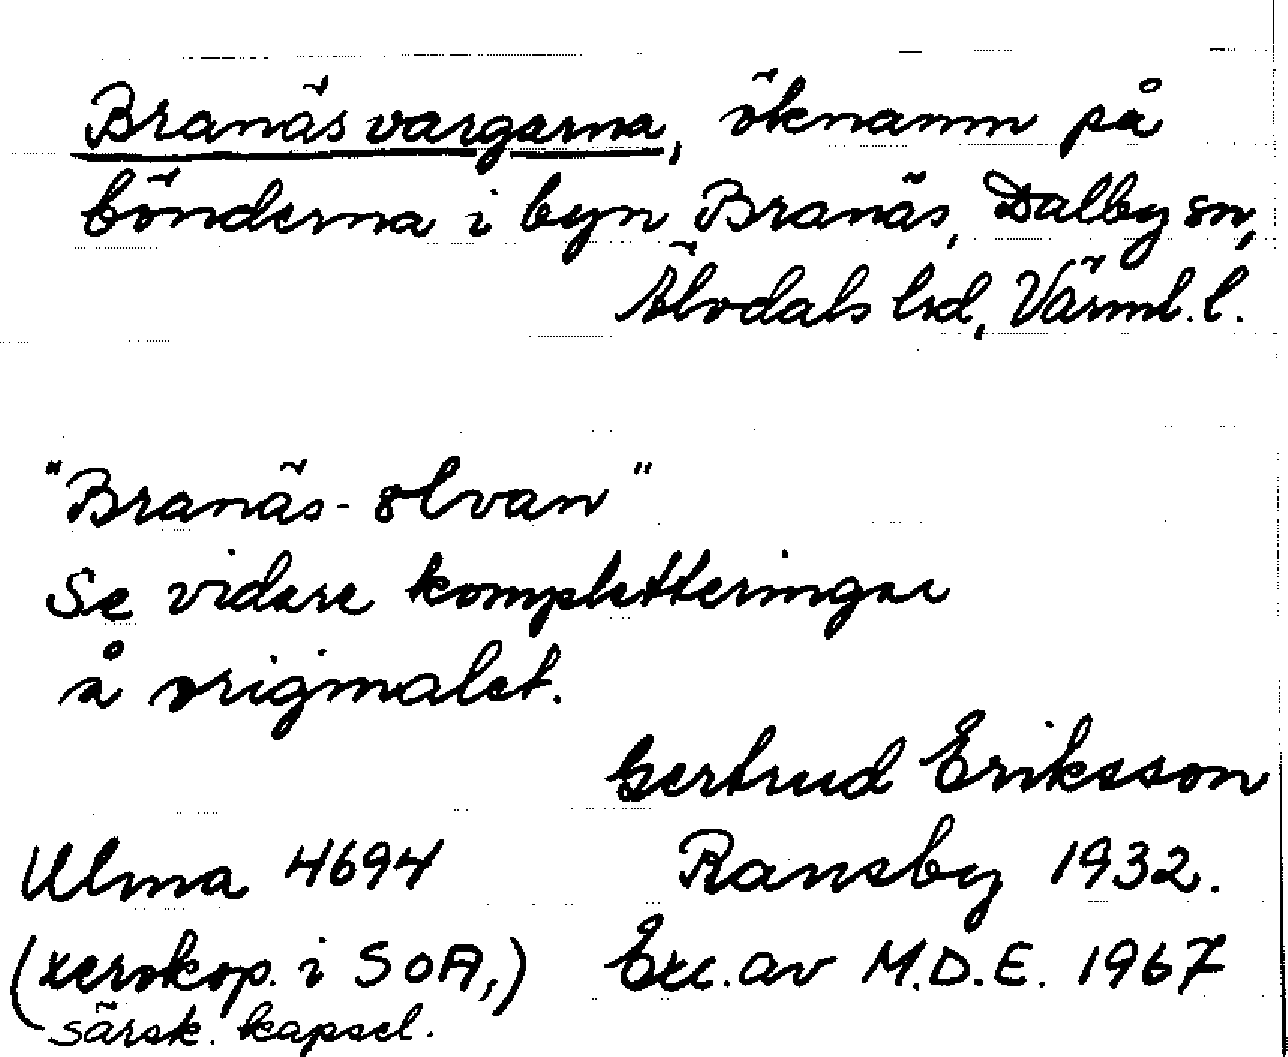 Branäsvargarna, öknamn på
bönderna i byn Branäs, Dalby sn,
Älvdals hd, Värml. l.
"Branäs-olvan"
Se vidare kompletteringar
å originalet.
Gertrud Eriksson
Ulma 4694 Ransby 1932.
(xerokop. i SOA,) Exc. av M.D.E. 1967
särsk. kapsel.